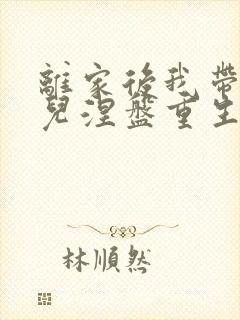 離家後我帶
兒涅盤重生
林順然